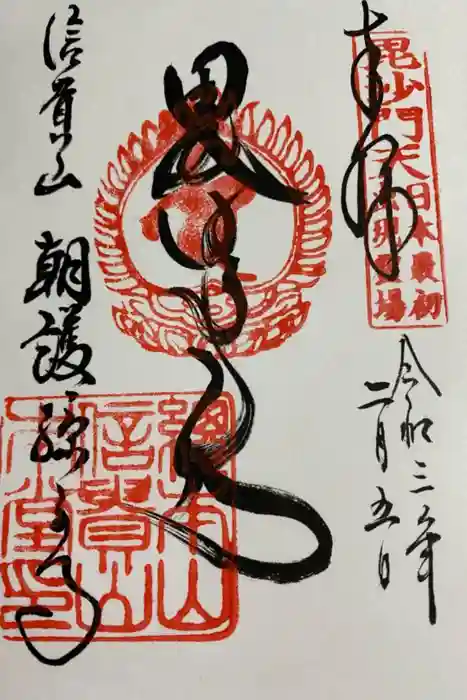 奉拝
毘沙門天
日本最初
出現霊場
令和三年
二月五日
毘沙門天
信貴山
朝護孫子寺
総本山
信貴山
本堂印